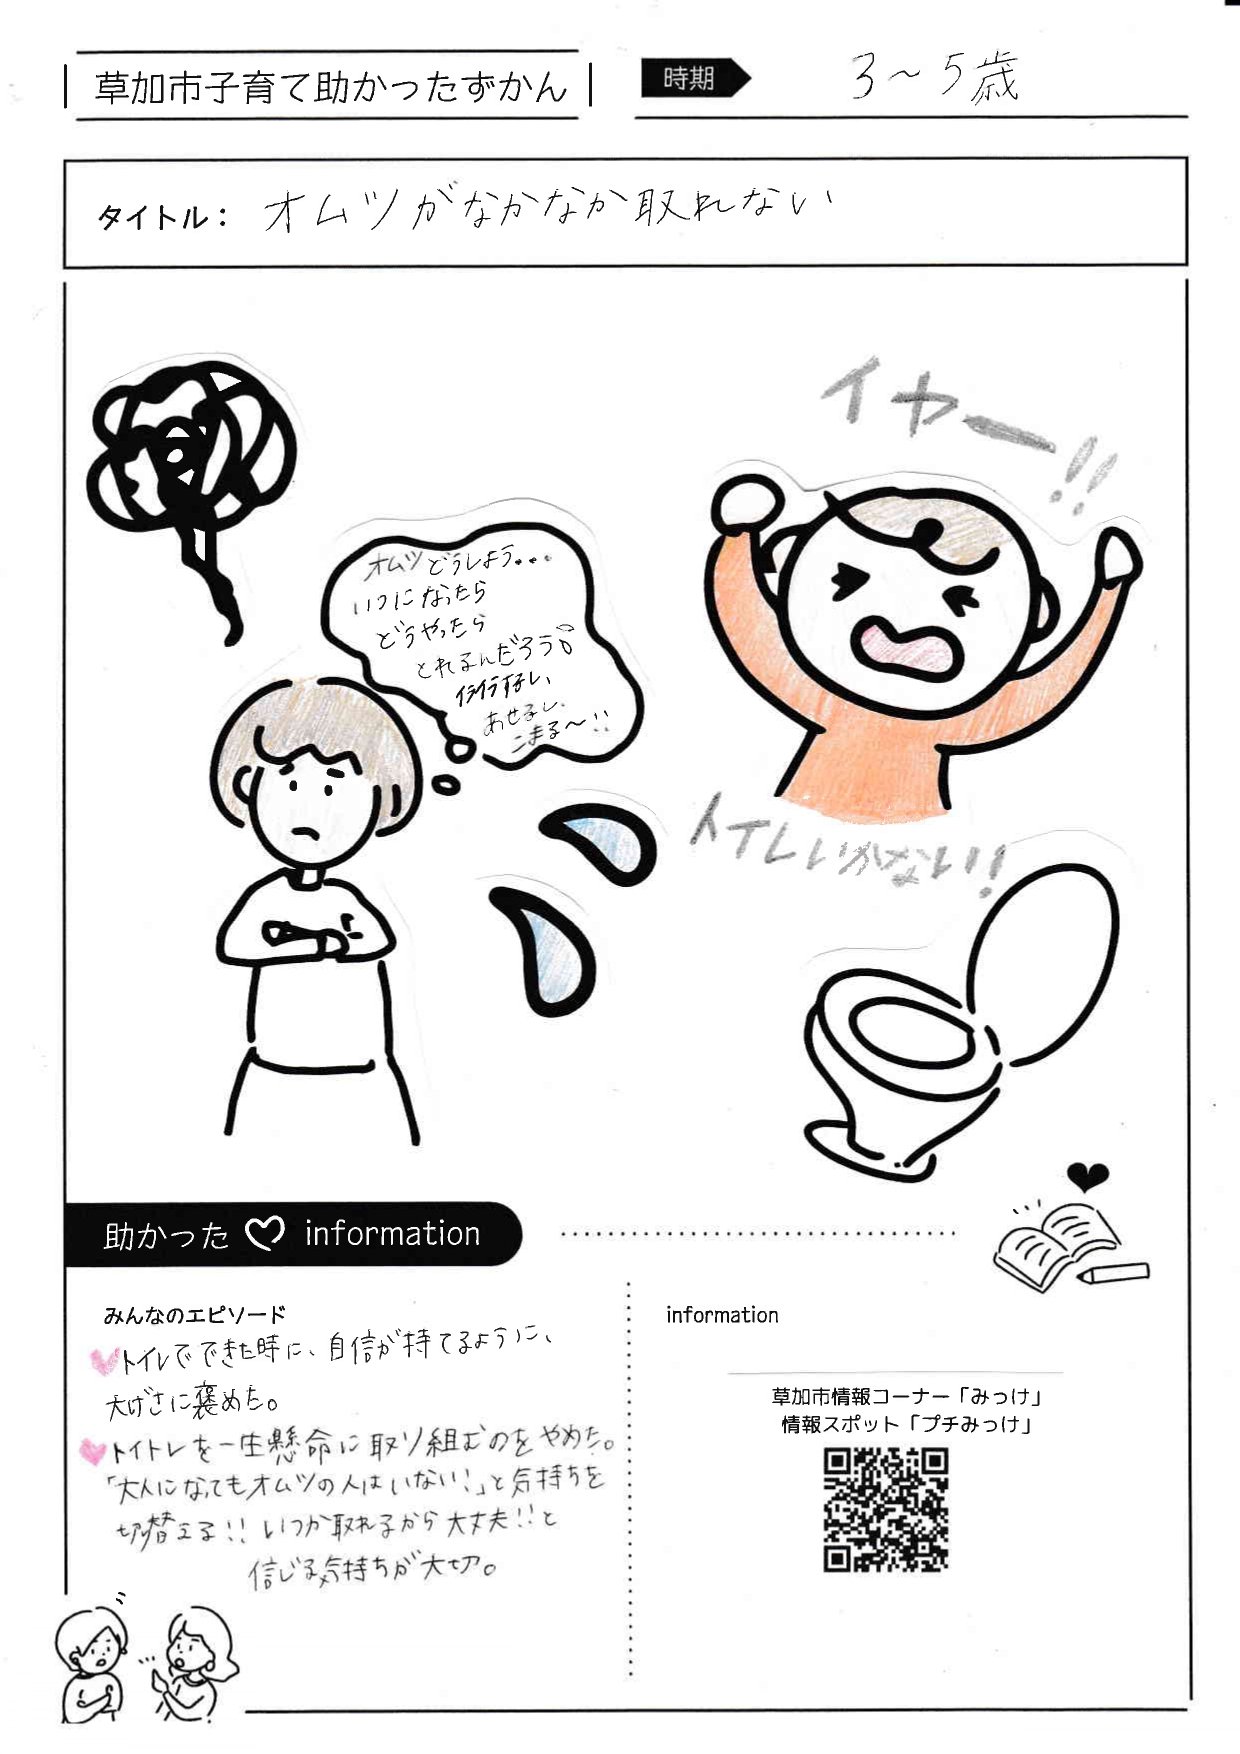 草加市子育て助かったずかん
時期
3〜5歳
タイトル：オムツがなかなか取れない
イヤー!!
オムツどうしよう...
いつになったら
どうやったら
とれるんだろう
イライラするし、
あせるし、
こまる〜!!
トイレいかない!!
助かった information
みんなのエピソード
トイレでできた時に、自信が持てるように、
大げさに褒めた。
トイトレを一生懸命に取り組むのをやめた。
「大人になってもオムツの人はいない!」と気持ちを
切替える!!いつか取れるから大丈夫!!と
信じる気持ちが大切。
information
草加市情報コーナー「みっけ」
情報スポット「プチみっけ」